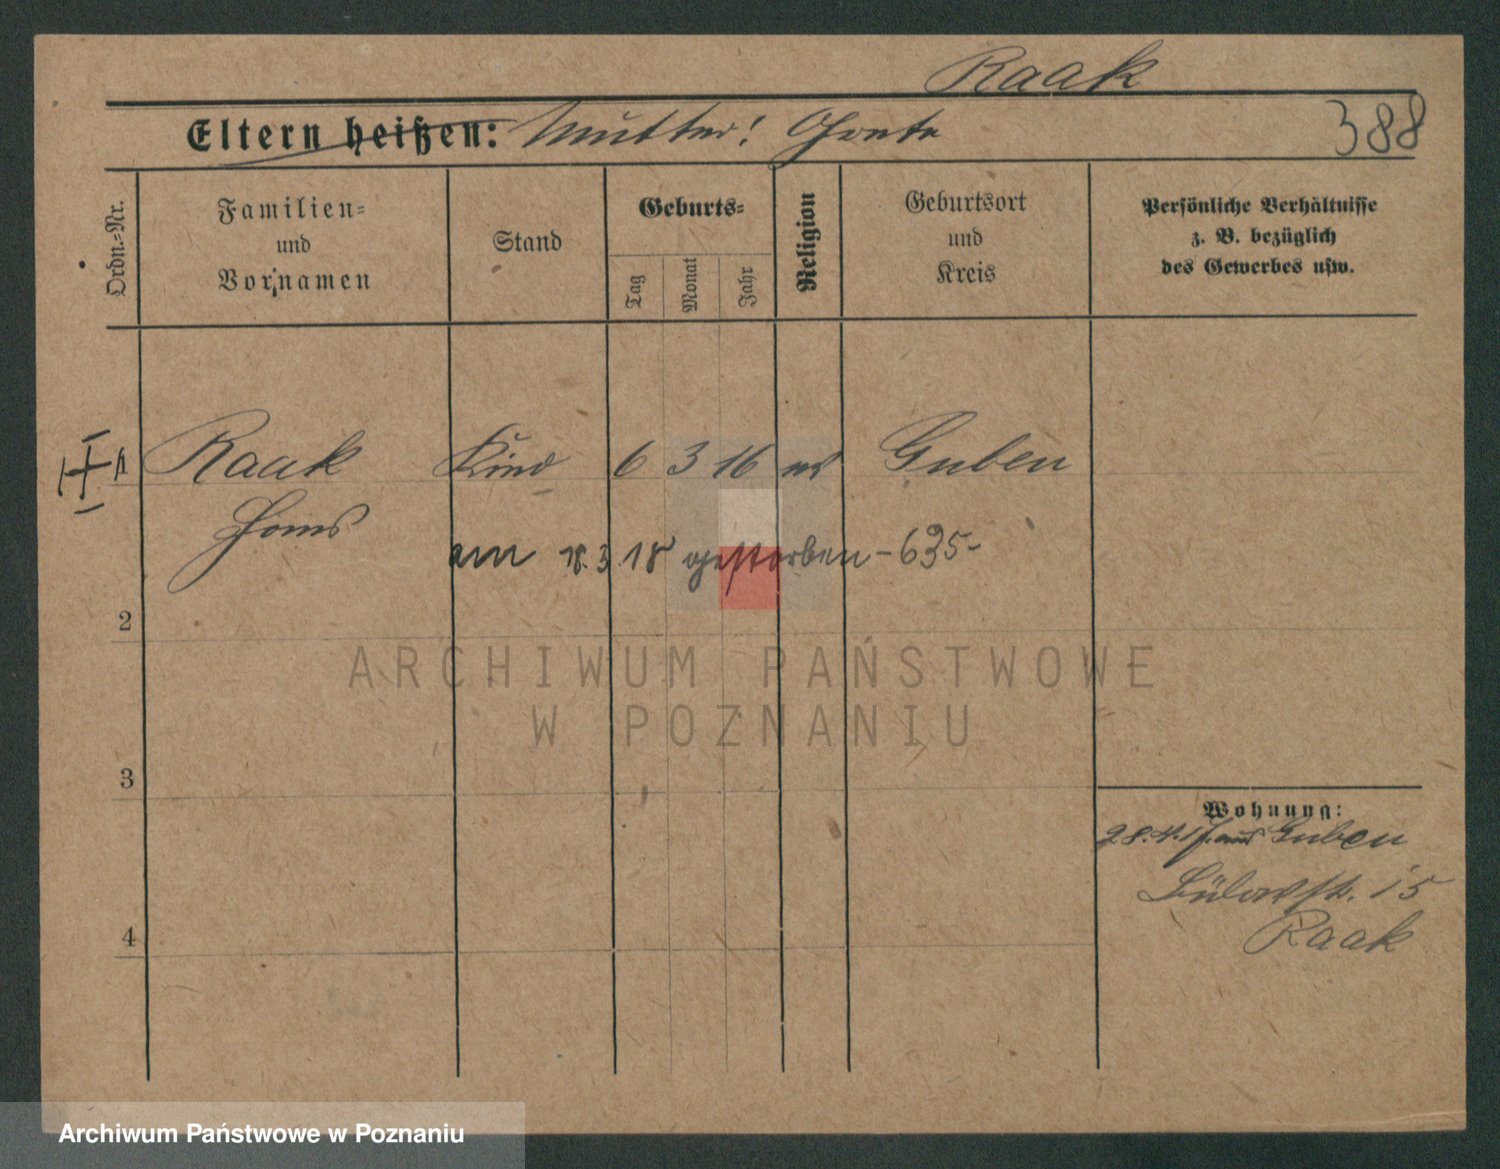 Raak
Eltern heißen: Mutter! Grete
388
Ordn.-Nr.
Familien-
und
Vornamen
Stand
Geburts-
Tag
Monat
Jahr
Religion
Geburtsort
und
Kreis
Persönliche Verhältnisse
z. B. bezüglich
des Gewerbes usw.
1 Raak Kind 6 3 16 ev Guben
Hans
am 18.3.18 gestorben - 635 -
2
3
4
Wohnung:
28.4.17 aus Guben
Bülowstr. 15
Raak
ARCHIWUM PAŃSTWOWE
W POZNANIU
Archiwum Państwowe w Poznaniu